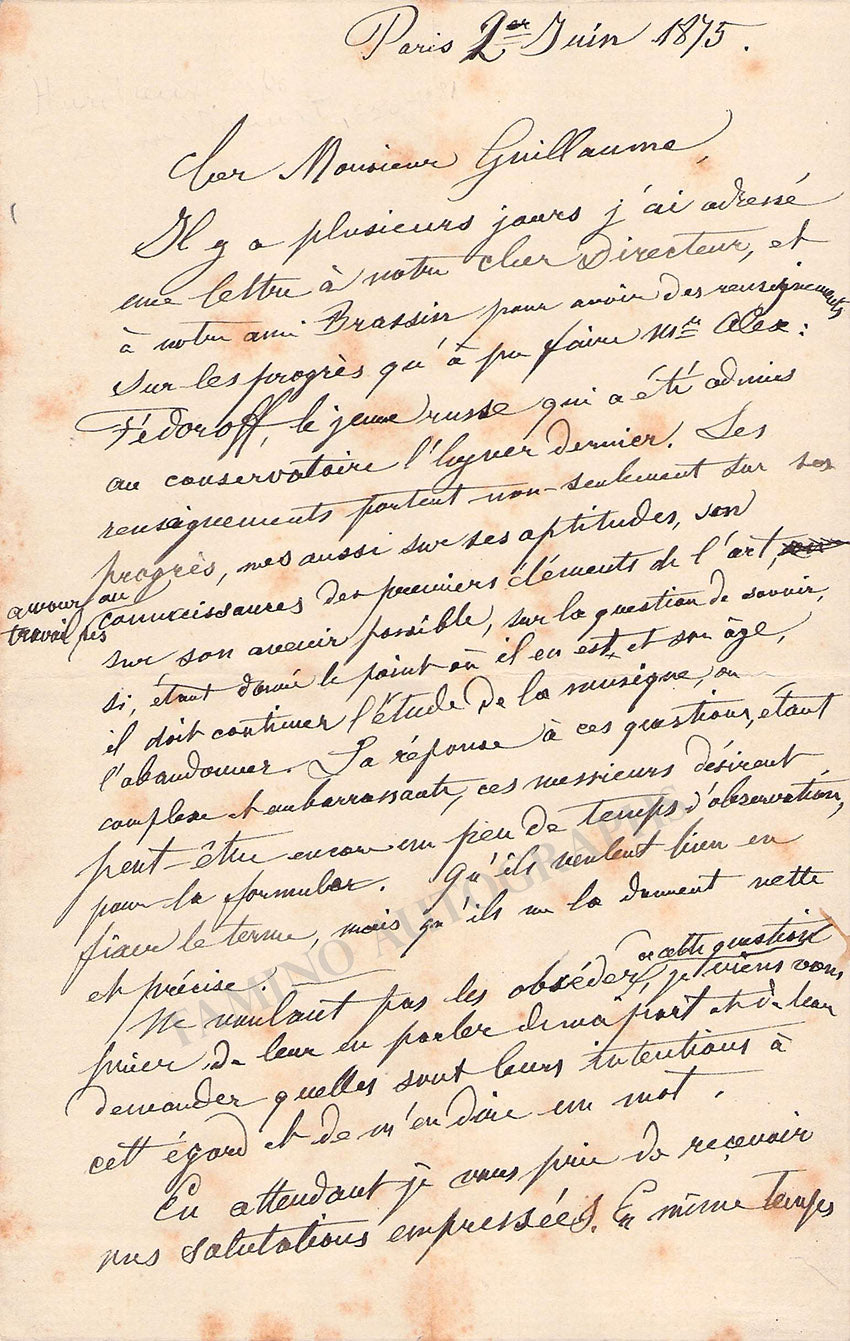 Paris 2er Juin 1875.
Cher Monsieur Guillaume,
Il y a plusieurs jours j'ai adressé
une lettre à notre cher Directeur, et
à notre ami Brassin pour avoir des renseignements
sur les progrès qu'à pu faire Mr Alex:
Fédoroff, le jeune russe qui a été admis
au conservatoire l'hyver dernier. Les
renseignements portent non-seulement sur ses
progrès, mes aussi sur ses aptitudes, son
amour au
travail, ses
connaissances des premiers éléments de l'art,
sur son avenir possible, sur la question de savoir,
si, étant donné le point où il en est et son âge,
il doit continuer l'étude de la musique, ou
l'abandonner. La réponse à ces questions, étant
complexe et embarrassante, ces messieurs désirent
peut-être encore un peu de temps d'observation,
pour la formuler. Qu'ils veulent bien en
fixer le terme, mais qu'ils me la donnent nette
et précise.
à cette question
Ne voulant pas les obséder, je viens vous
prier de leur en parler de ma part et de leur
demander quelles sont leurs intentions à
cett égard et de m'en dire un mot.
En attendant je vous prie de reçevoir
mes salutations empressées. En même temps
TAMINO AUTOGRAPHS